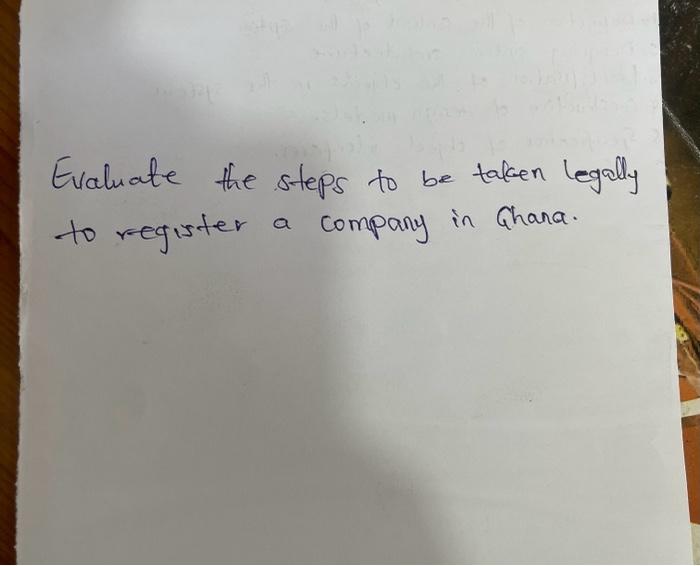 Evaluate the steps to be taken legally
to register a company in Ghana.